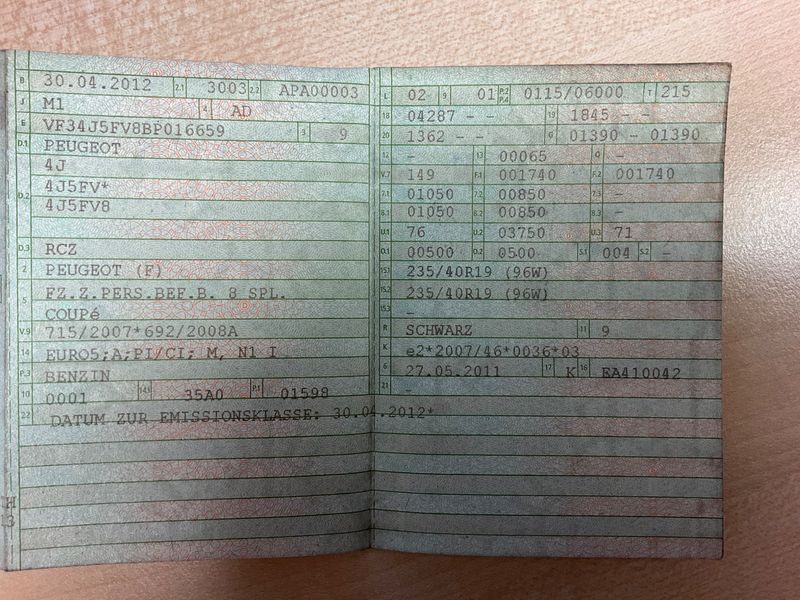 B 30.04.2012 2.1 3003 2.2 APA00003
J M1 4 AD
E VF34J5FV8BP016659 3 9
D.1 PEUGEOT
4J
D.2 4J5FV*
4J5FV8
D.3 RCZ
2 PEUGEOT (F)
5 FZ.Z.PERS.BEF.B. 8 SPL.
COUPé
V.9 715/2007*692/2008A
14 EURO5;A;PI/CI; M, N1 I
P.3 BENZIN
10 0001 14.1 35A0 P.1 01598
22 DATUM ZUR EMISSIONSKLASSE: 30.04.2012*
L 02 9 01 P.2 P.4 0115/06000 T 215
18 04287 - - 19 1845 - -
20 1362 - - G 01390 - 01390
12 - 13 00065 Q -
V.7 149 F.1 001740 F.2 001740
7.1 01050 7.2 00850 7.3 -
8.1 01050 8.2 00850 8.3 -
U.1 76 U.2 03750 U.3 71
O.1 00500 O.2 0500 S.1 004 S.2 -
15.1 235/40R19 (96W)
15.2 235/40R19 (96W)
15.3 -
R SCHWARZ 11 9
K e2*2007/46*0036*03
6 27.05.2011 17 K 16 EA410042
21 -